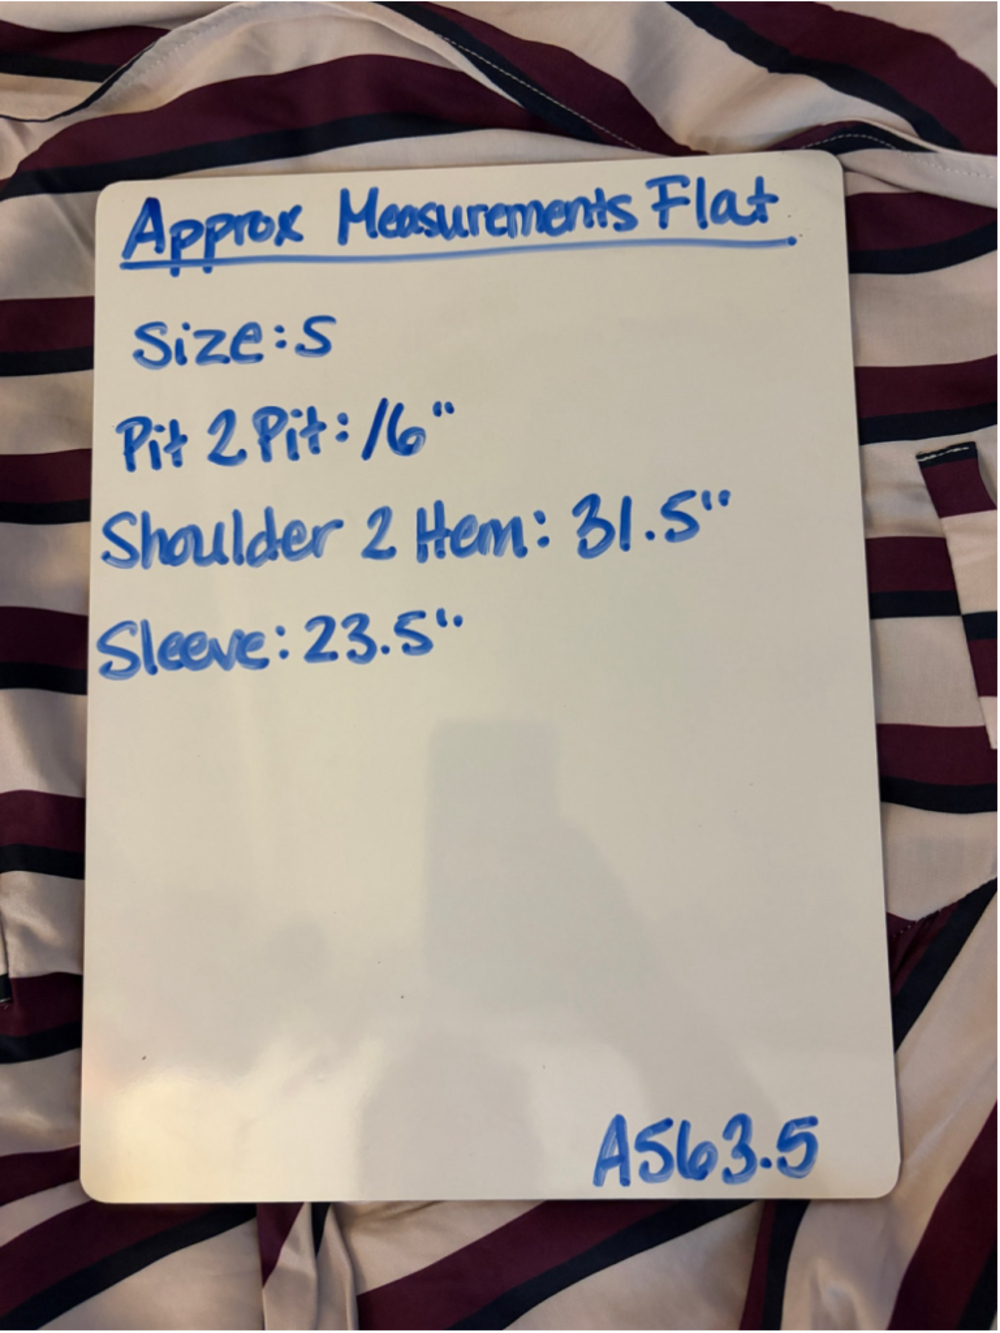 Approx Measurements Flat
Size: S
Pit 2 Pit: 16"
Shoulder 2 Hem: 31.5"
Sleeve: 23.5"
A563.5